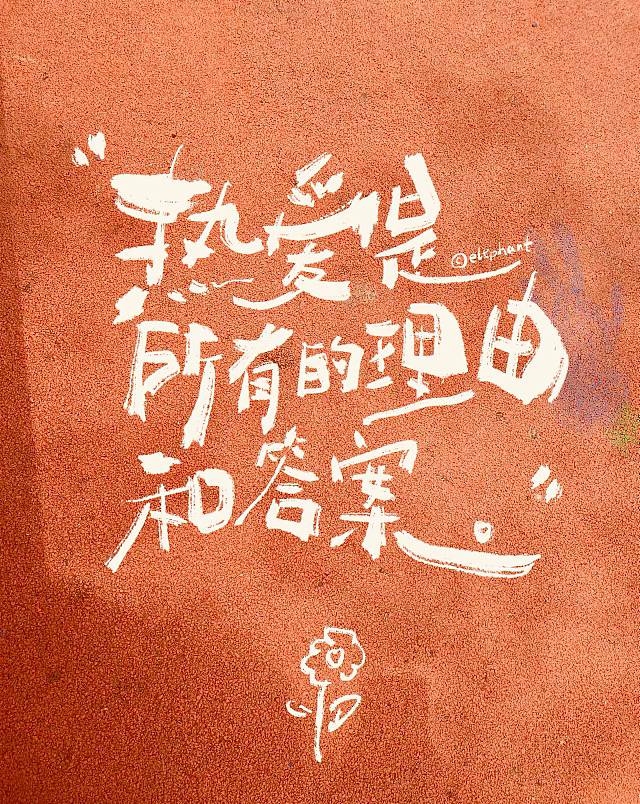 “热爱是
©elephant
所有的理由
和答案。”